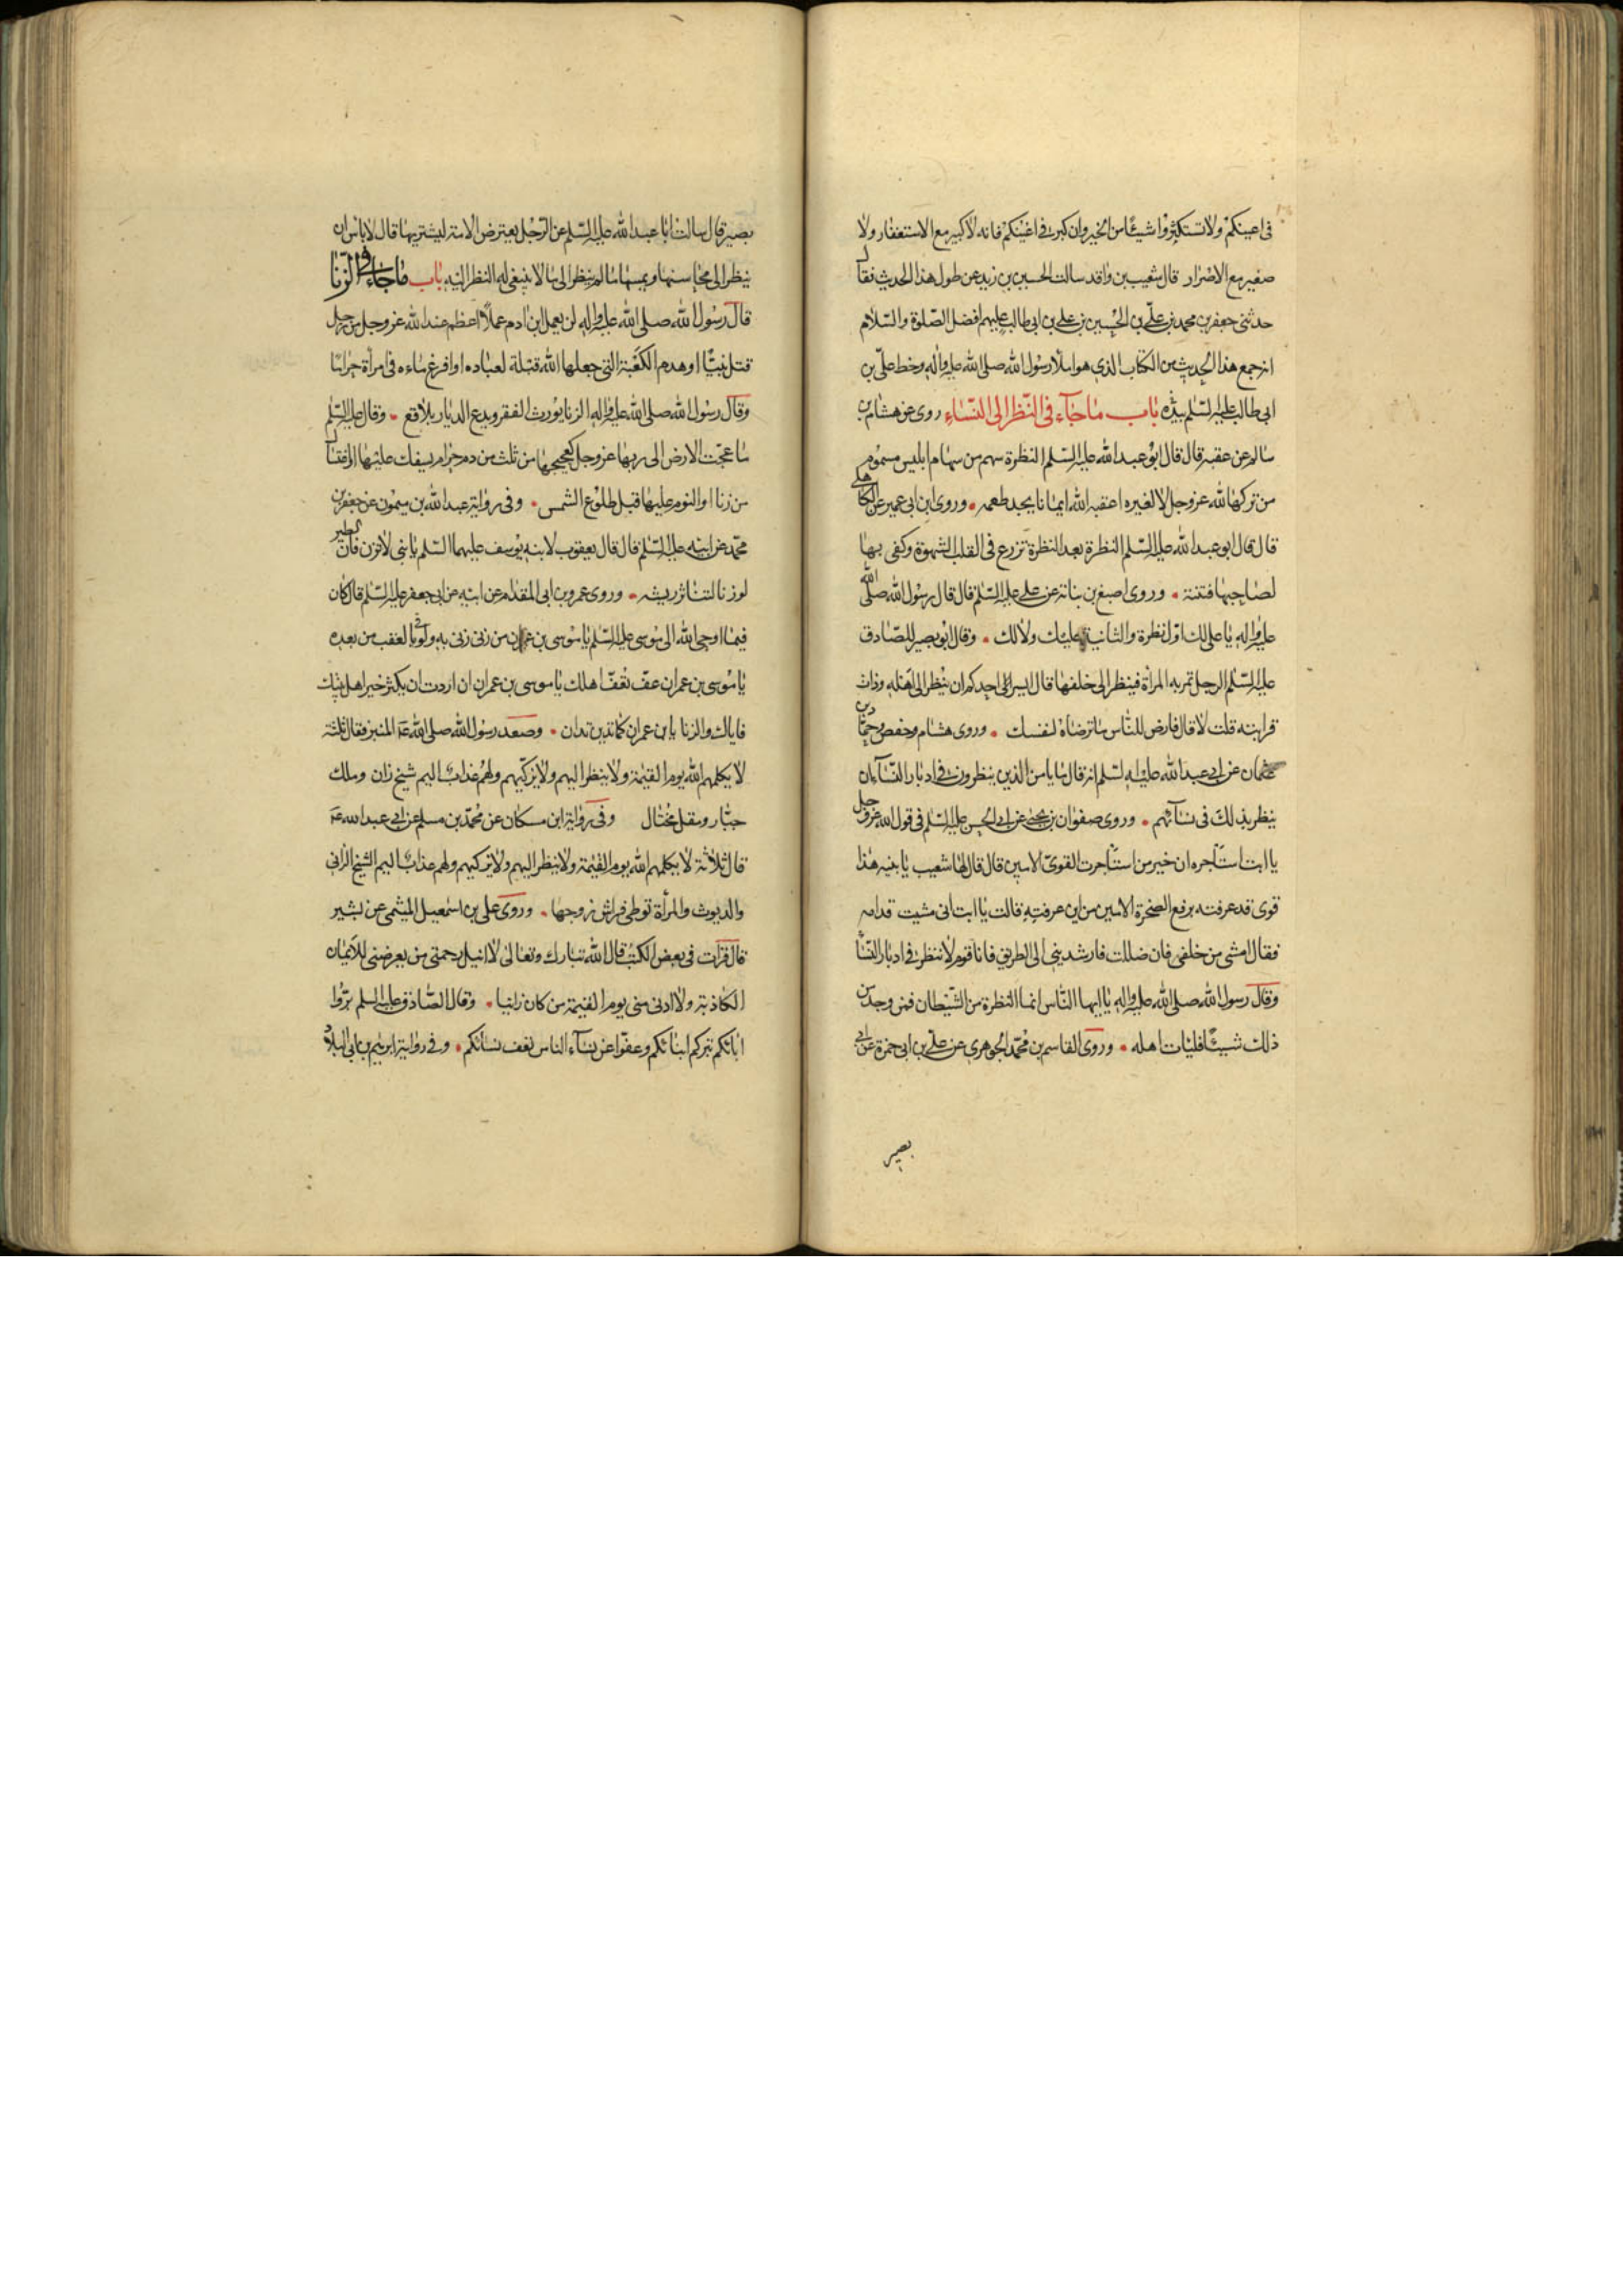 فی اعینکم ولا تستکثروا شیئا من الخیر وان کبر فی اعینکم فانه لا کبیر مع الاستغفار ولا
صغیر مع الاصرار قال شعیب بن واقد سالت الحسین بن زید عن طول هذا الحدیث فقال
حدثنی جعفر بن محمد بن علی بن الحسین بن علی بن ابی طالب علیهم افضل الصلوة والسلام
انه جمع هذا الحدیث من الکتاب الذی هو املاء رسول الله صلی الله علیه واله وخط علی بن
ابی طالب علیه السلم بیده باب ما جاء فی النظر الی النساء روی عن هشام بن
سالم عن عقبه قال قال ابو عبد الله علیه السلم النظرة سهم من سهام ابلیس مسموم
من ترکها لله عز وجل لا لغیره اعقبه الله ایمانا یجد طعمه وروی ابن ابی عمیر عن الکاهلی
قال قال ابو عبد الله علیه السلم النظرة بعد النظرة تزرع فی القلب الشهوة وکفی بها
لصاحبها فتنة وروی اصبغ بن نباتة عن علی علیه السلم قال قال رسول الله صلی الله
علیه واله یا علی لک اول نظرة والثانیة علیک ولا لک وقال ابو بصیر للصادق
علیه السلم الرجل تمر به المراة فینظر الی خلفها قال ایسر احدکم ان ینظر الی اهله وذات
قرابته قلت لا قال فارض للناس ما ترضاه لنفسک وروی هشام وحفص وحماد بن
عثمان عن ابی عبد الله علیه السلم انه قال ما یامن الذین ینظرون فی ادبار النساء ان
ینظر بذلک فی نسائهم وروی صفوان بن یحیی عن ابی الحسن علیه السلم فی قول الله عز وجل
یا ابت استاجره ان خیر من استاجرت القوی الامین قال قال لها شعیب یا بنیه هذا
قوی قد عرفته برفع الصخرة الامین من این عرفته قالت یا ابت انی مشیت قدامه
فقال امشی من خلفی فان ضللت فارشدینی الی الطریق فانا قوم لا ننظر فی ادبار النساء
وقال رسول الله صلی الله علیه واله یا ایها الناس انما النظرة من الشیطان فمن وجد من
ذلک شیئا فلیات اهله وروی القاسم بن محمد الجوهری عن علی بن ابی حمزة عن ابی
بصیر
بصیر قال سالت ابا عبد الله علیه السلم عن الرجل یعترض الامة لیشتریها قال لا باس ان
ینظر الی محاسنها ویمسها ما لم ینظر الی ما لا ینبغی له النظر الیه باب ما جاء فی الزنا
قال رسول الله صلی الله علیه واله لن یعمل ابن ادم عملا اعظم عند الله عز وجل من رجل
قتل نبیا او هدم الکعبة التی جعلها الله قبلة لعباده او افرغ ماءه فی امراة حراما
وقال رسول الله صلی الله علیه واله الزنا یورث الفقر ویدع الدیار بلاقع وقال علیه السلم
ما عجت الارض الی ربها عز وجل کعجیجها من ثلث من دم حرام یسفک علیها او اغتسال
من زنا او النوم علیها قبل طلوع الشمس وفی روایة عبد الله بن میمون عن جعفر بن
محمد عن ابیه علیه السلم قال قال یعقوب لابنه یوسف علیهما السلم یا بنی لا تزن فان الطیر
لو زنا لتناثر ریشه وروی عمرو بن ابی المقدام عن ابیه عن ابی جعفر علیه السلم قال کان
فیما اوحی الله الی موسی علیه السلم یا موسی بن عمران من زنی زنی به ولو فی العقب من بعده
یا موسی بن عمران عف تعف اهلک یا موسی بن عمران ان اردت ان یکثر خیر اهل بیتک
فایاک والزنا یا بن عمران کما تدین تدان وصعد رسول الله صلی الله علیه المنبر فقال ثلثة
لا یکلمهم الله یوم القیمة ولا ینظر الیهم ولا یزکیهم ولهم عذاب الیم شیخ زان وملک
جبار ومقل مختال وفی روایة ابن مسکان عن محمد بن مسلم عن ابی عبد الله ع
قال ثلاثة لا یکلمهم الله یوم القیمة ولا ینظر الیهم ولا یزکیهم ولهم عذاب الیم الشیخ الزانی
والدیوث والمراة توطی فراش زوجها وروی علی بن اسمعیل المیثمی عن بشیر
قال قرات فی بعض الکتب قال الله تبارک وتعالی لا انیل رحمتی من یعرضنی للایمان
الکاذبة ولا ادنی منی یوم القیمة من کان زانیا وقال الصادق علیه السلم بروا
ابائکم تبرکم ابنائکم وعفوا عن نساء الناس تعف نسائکم وفی روایة ابرهیم بن ابی البلاد